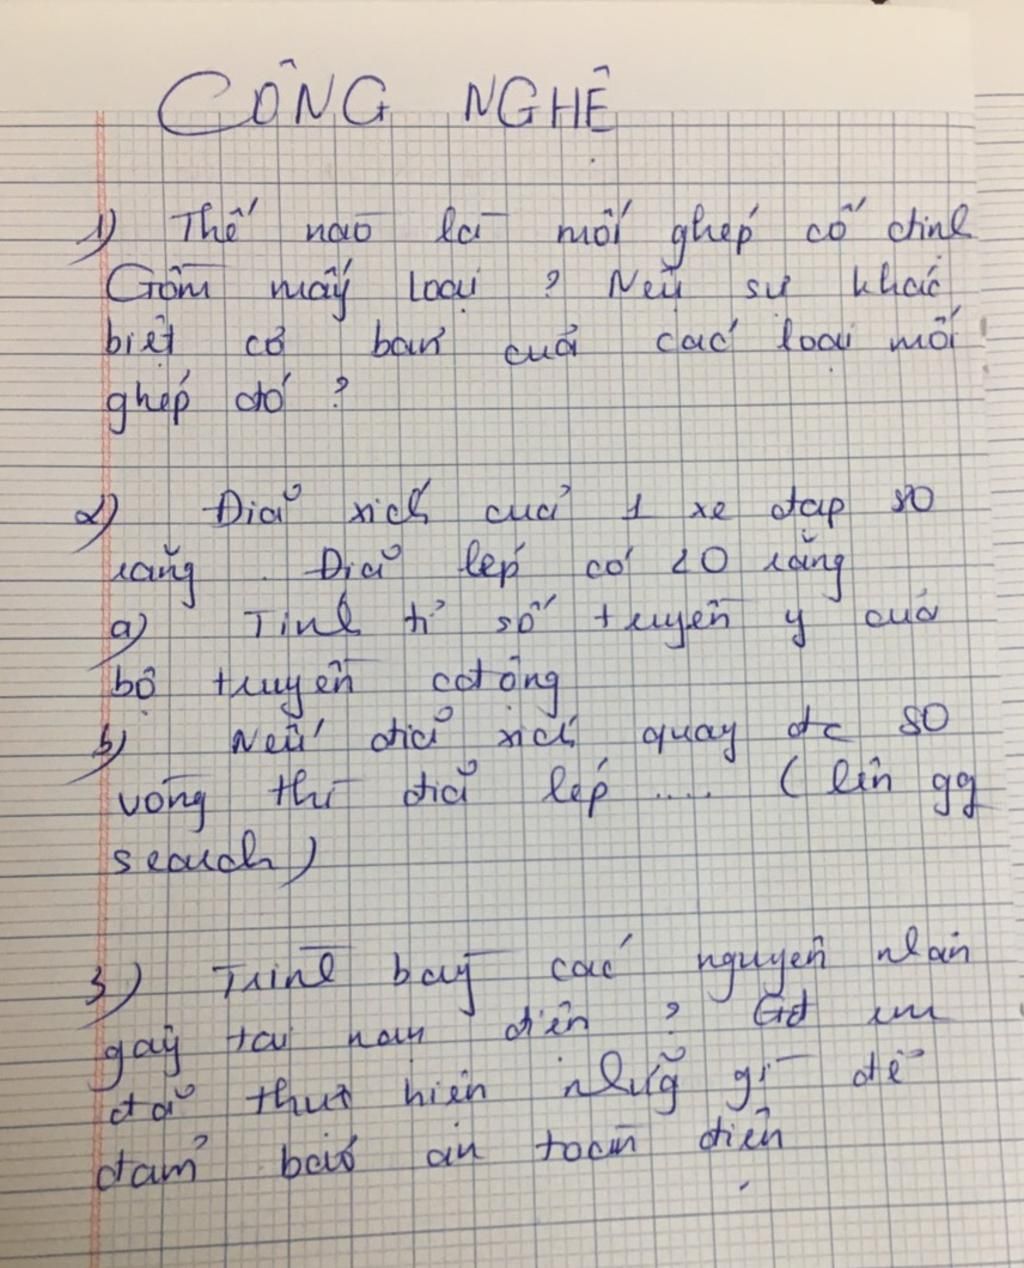 CÔNG NGHỆ
1) Thế nào là mối ghép cố định
Gồm mấy loại ? Nêu sự khác
biệt cơ bản của các loại mối
ghép đó ?
2) Đĩa xích của 1 xe đạp 80
răng . Đĩa líp có 20 răng
a) Tính tỉ số truyền y của
bộ truyền cđ ộng
b) Nếu đĩa xích quay đc 80
vòng thì đĩa líp ..... ( lên gg
search )
3) Trình bày các nguyên nhân
gây tai nạn điện ? Gđ em
đã thực hiện nhữg gì để
đảm bảo an toàn điện